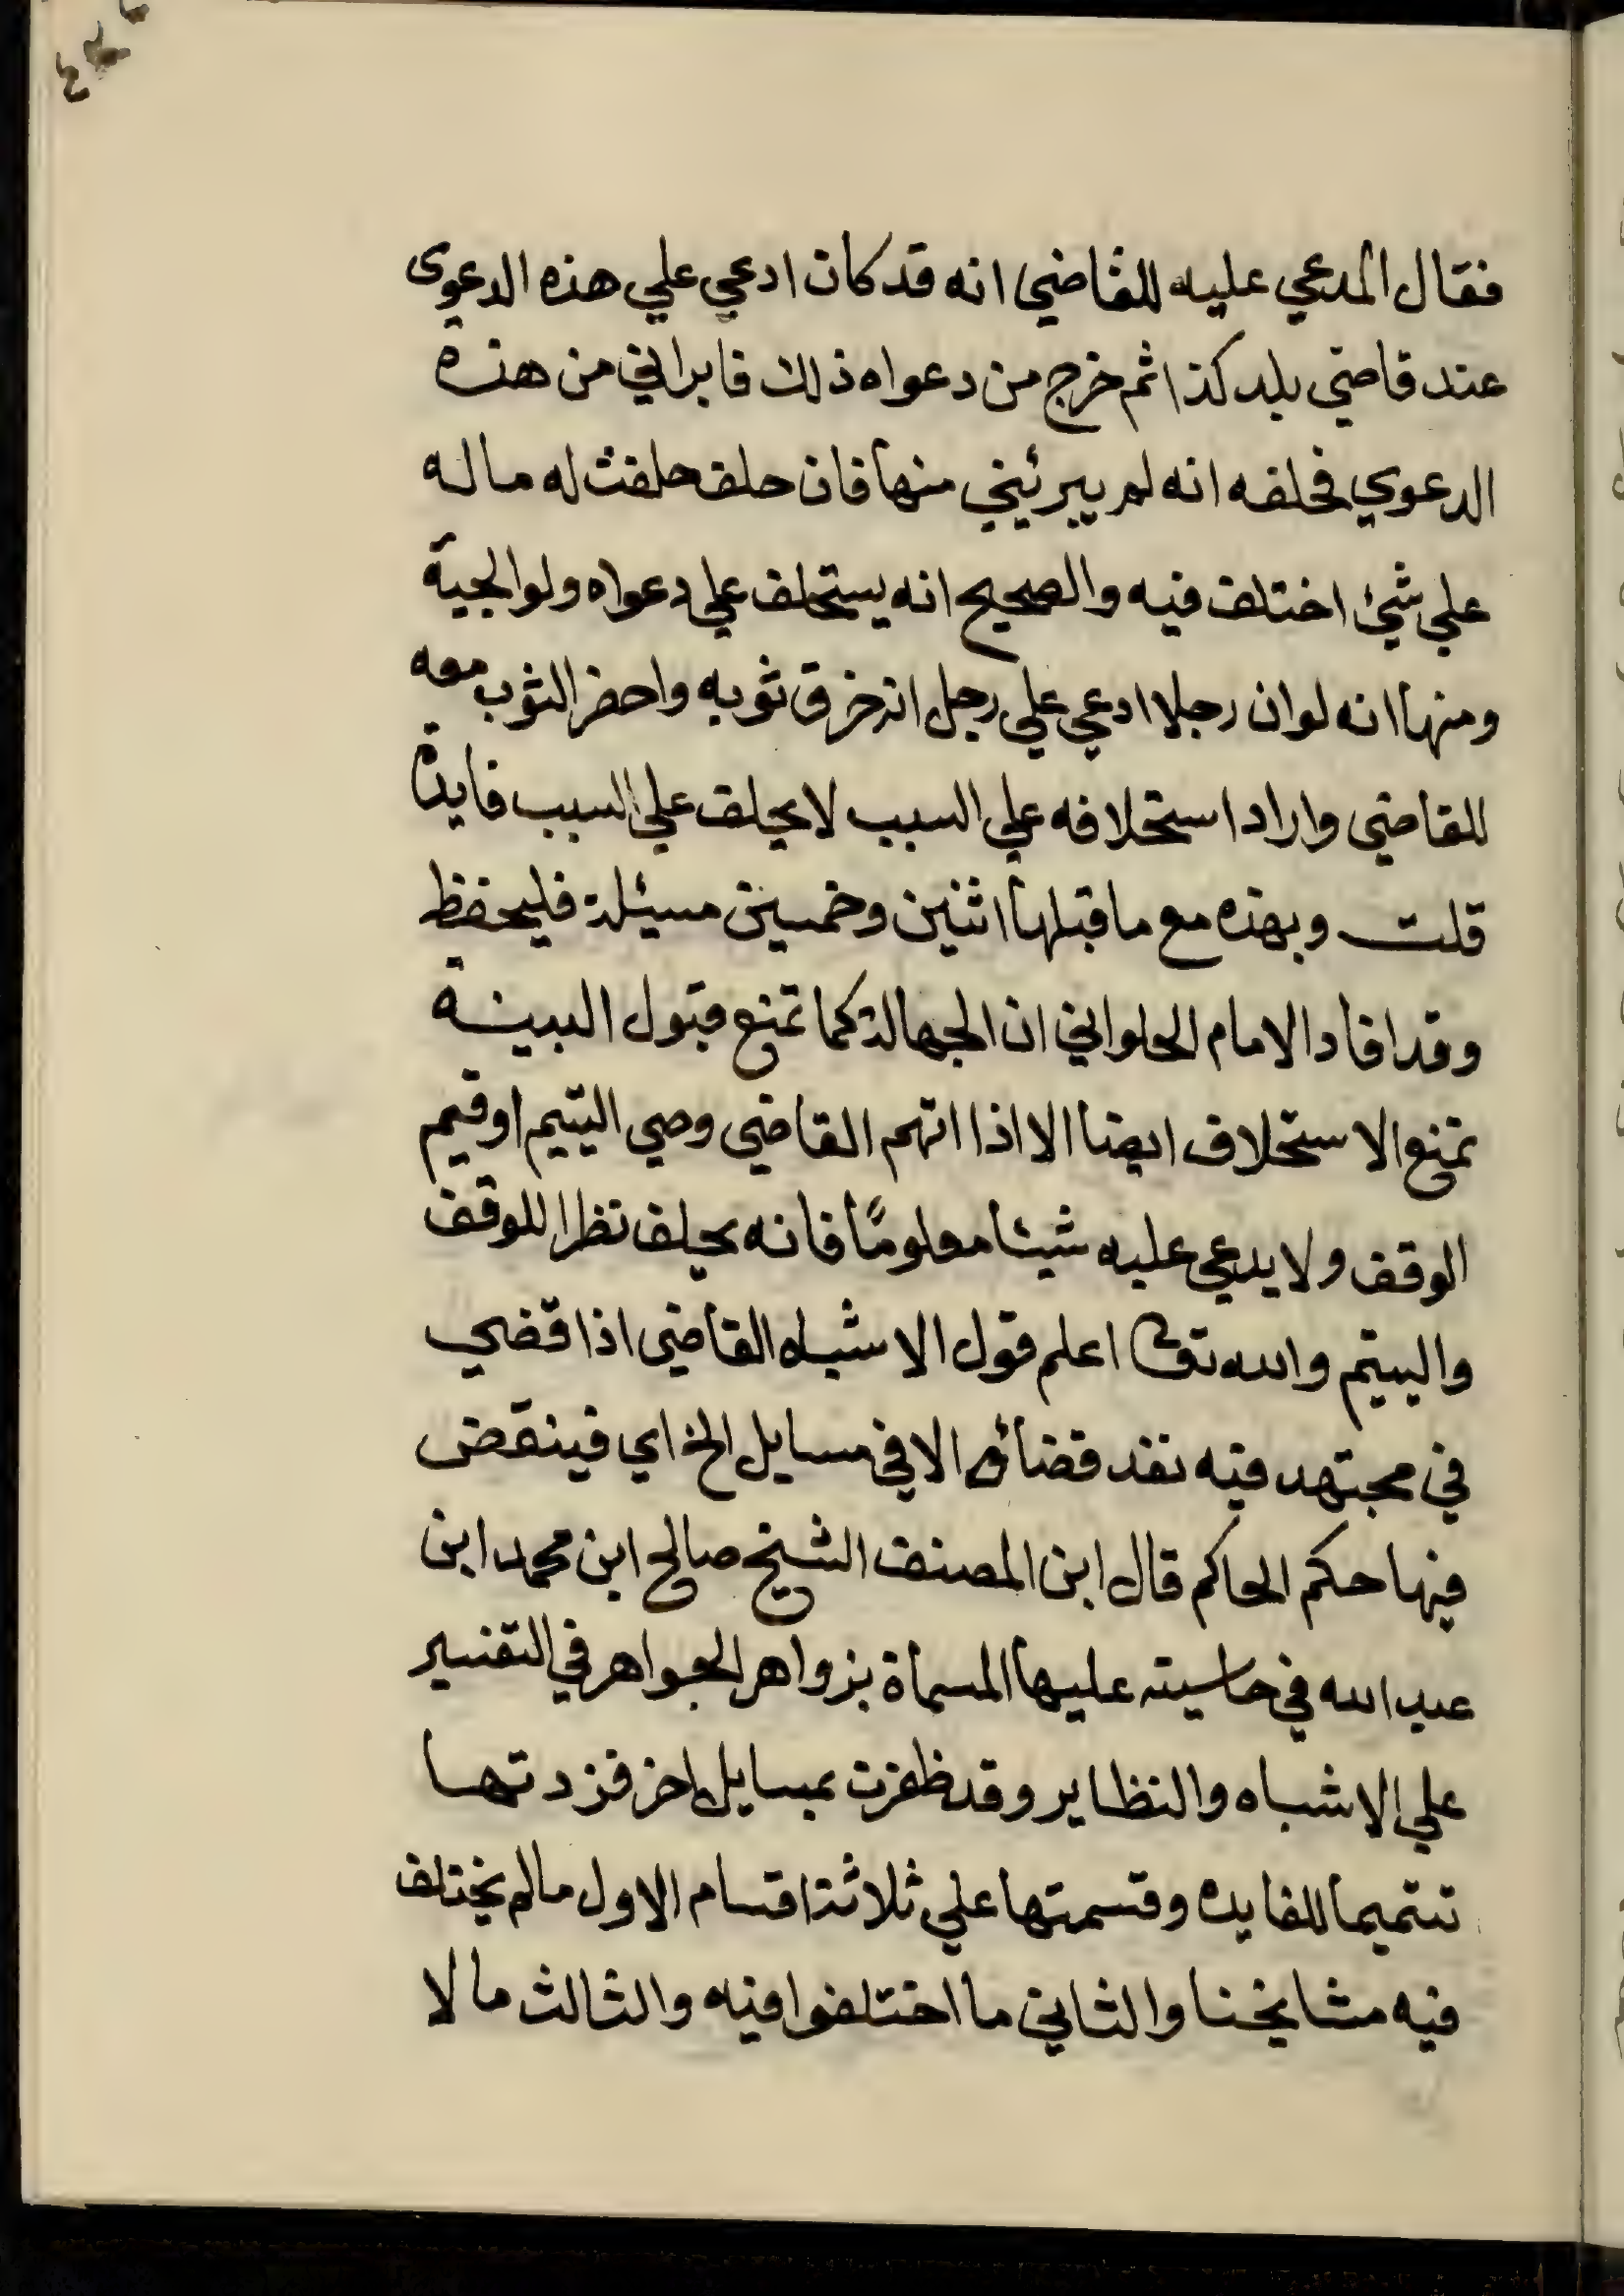 فقال المدعي عليه للقاضي انه قد كان ادعي علي هذه الدعوى
عند قاضي بلد كذا ثم خرج من دعواه ذلك فابراني من هذه
الدعوي فحلفه انه لم يبرئيني منها فان حلف حلفت له ما له
علي شئ اختلف فيه والصحيح انه يستحلف علي دعواه ولوالجية
ومنها انه لو ان رجلا ادعي علي رجل انه خرق ثوبه واحضر الثوب معه
للقاضي واراد استحلافه علي السبب لا يحلف علي السبب فايدة
قلت وبهذه مع ما قبلها اثنين وخمسين مسيئلة فليحفظ
وقد افاد الامام الحلواني ان الجهالة كما تمنع قبول البينة
تمنع الاستحلاف ايضا الا اذا اتهم القاضي وصي اليتيم او قيم
الوقف ولا يدعي عليه شيئا معلومًا فانه يحلف نظرا للوقف
واليتيم والله تعالى اعلم قول الاشباه القاضي اذا قضي
في مجتهد فيه نفذ قضائه الا في مسايل الخ اي فينقض
فيها حكم الحاكم قال ابن المصنف الشيخ صالح ابن محمد ابن
عبد الله في حاسيته عليها المسماة بزواهر الجواهر في التفسير
علي الاشباه والنظاير وقد ظفرت بمسايل اخر فزدتها
تتميما للفايده وقسمتها علي ثلاثة اقسام الاول ما لم يختلف
فيه مشايخنا والثاني ما اختلفوا فيه والثالث ما لا